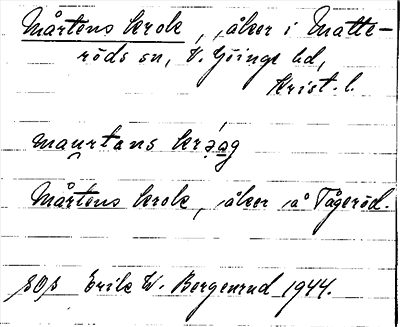 Mårtens krok, åker i Matte-
röds sn, V. Göinge hd,
Krist. l.
maurtans krǫag
Mårtens krok, åker å Tågeröd.
SOS Erik W. Bergenrud 1944.